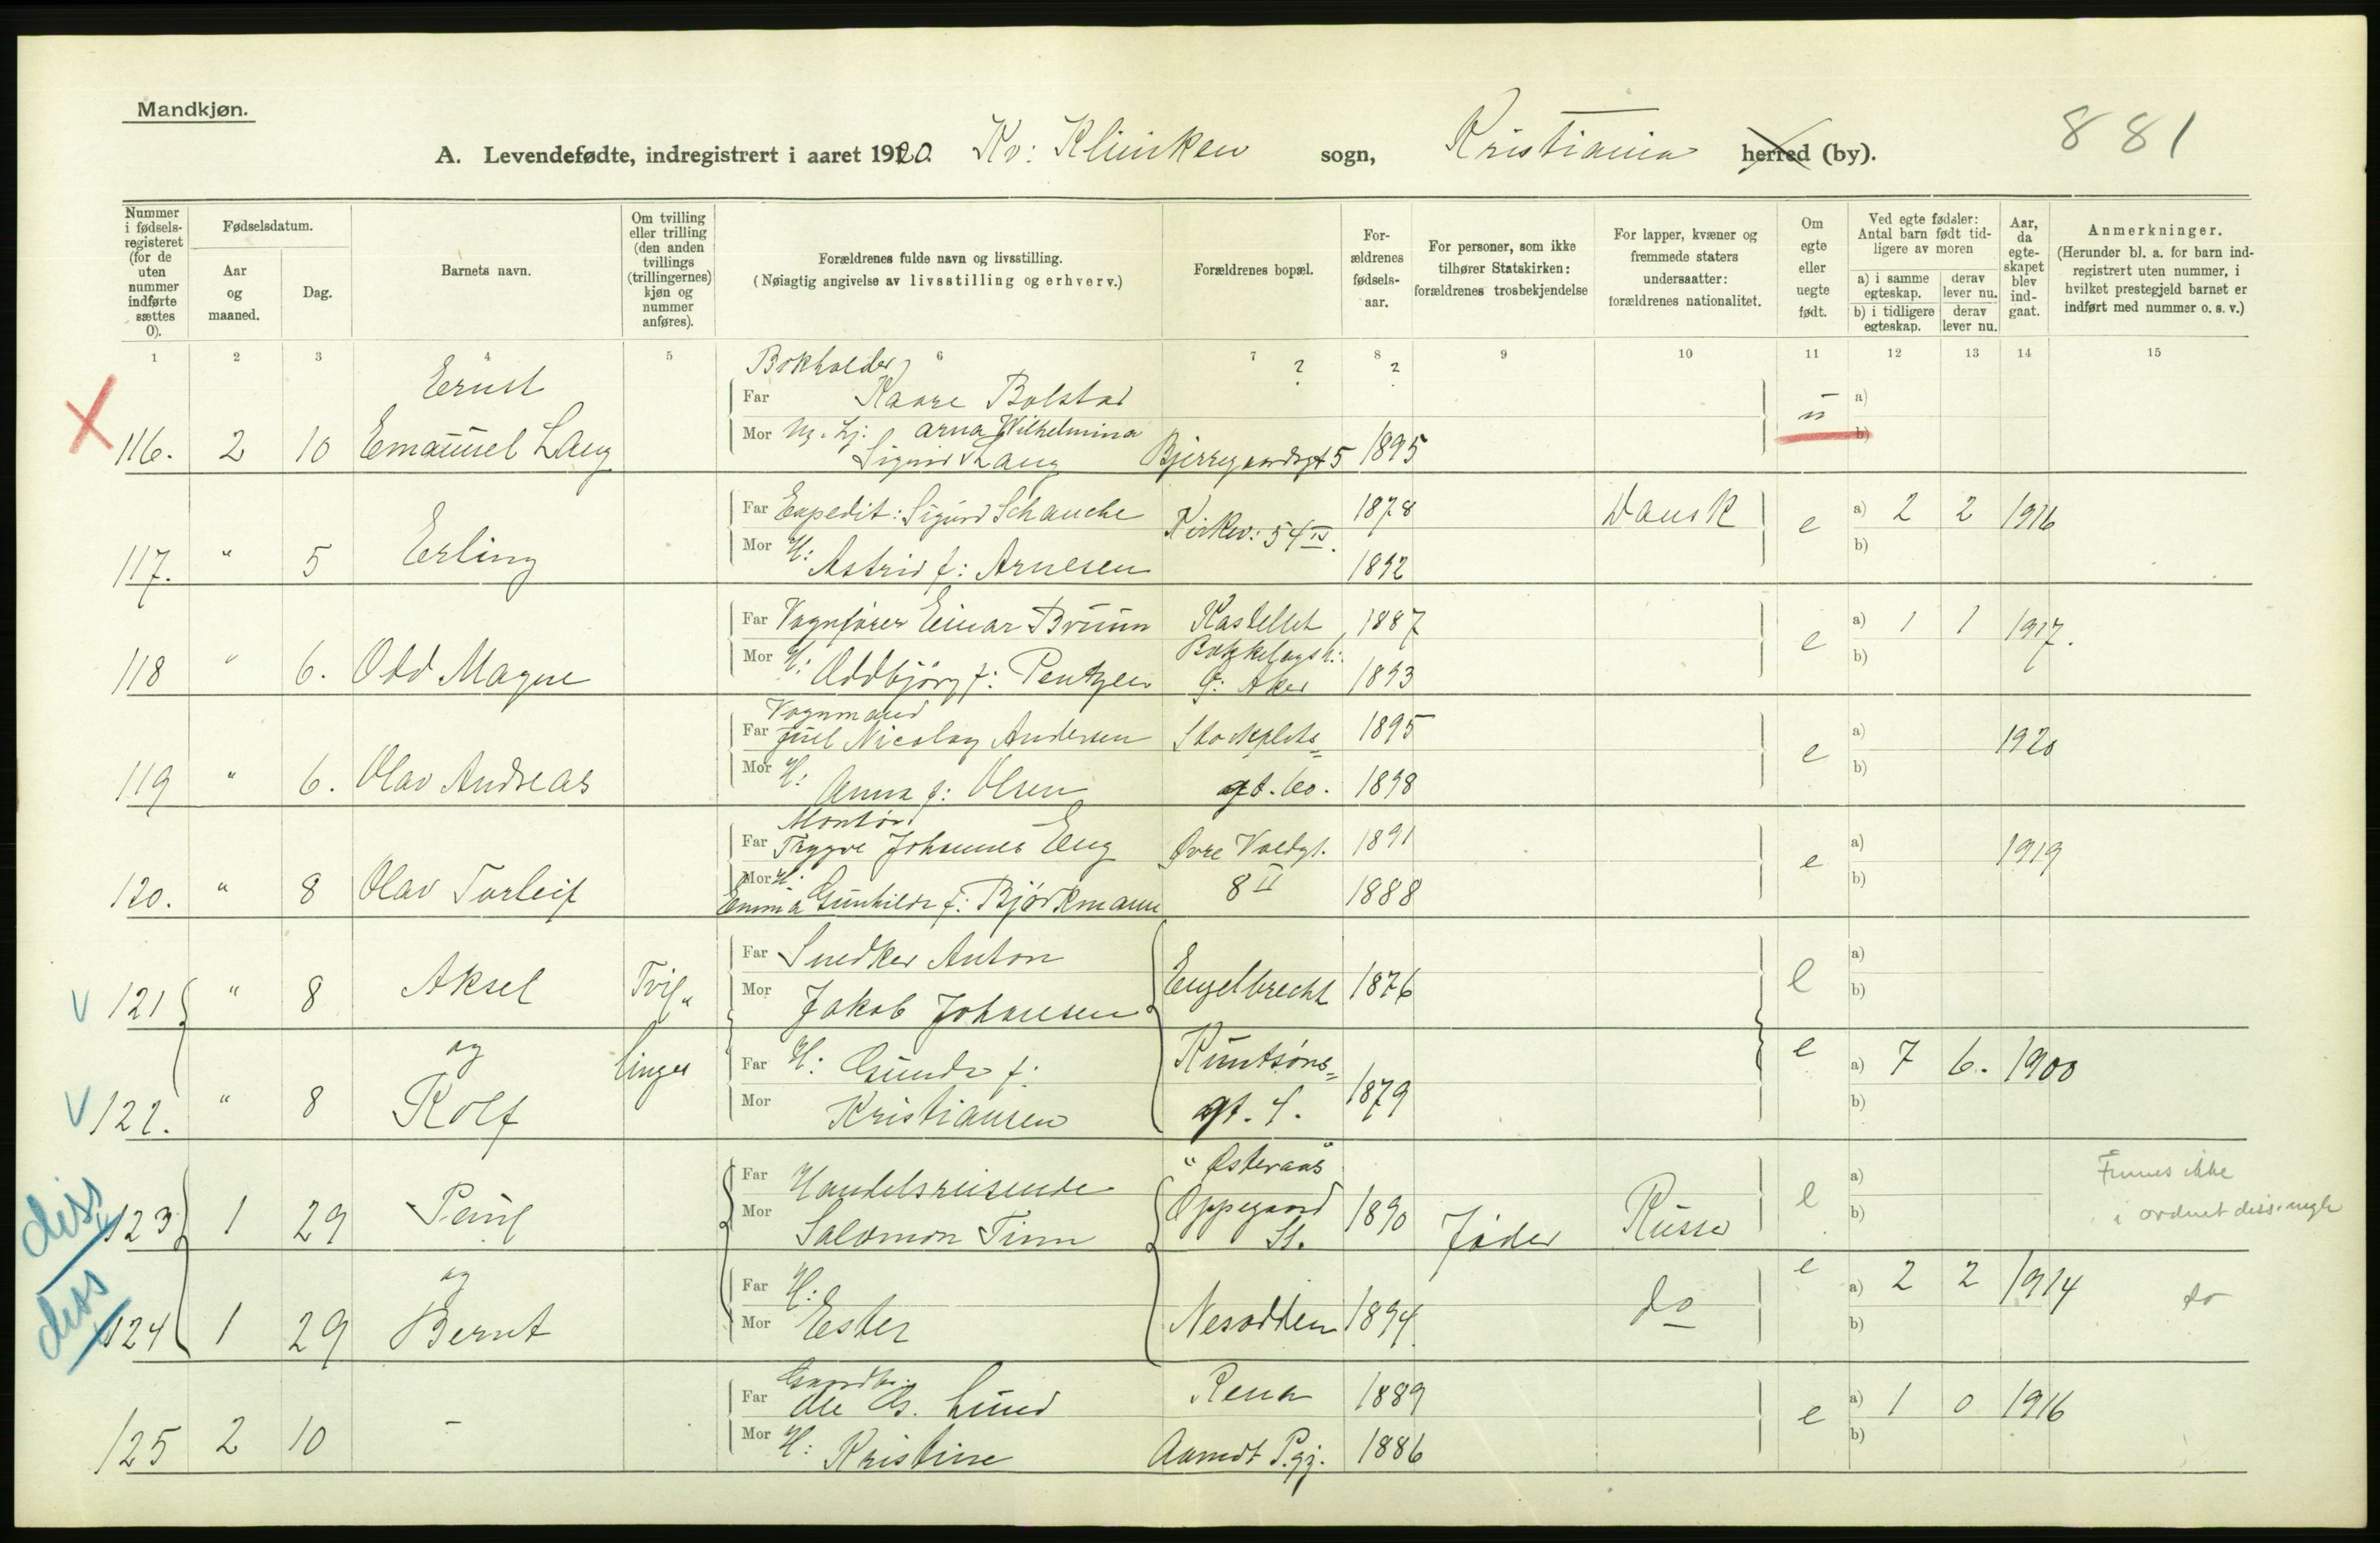 Mandkjøn.
881
A. Levendefødte, indregistrert i aaret 1920. Kv: Kliniken sogn, Kristiania herred (by).
Nummer i fødsels-registeret (for de uten nummer indførte sættes 0).
Fødselsdatum.
Aar og maaned.
Dag.
Barnets navn.
Om tvilling eller trilling (den anden tvillings (trillingernes) kjøn og nummer anføres).
Forældrenes fulde navn og livsstilling.
(Nøiagtig angivelse av livsstilling og erhverv.)
Forældrenes bopæl.
For-ældrenes fødsels-aar.
For personer, som ikke tilhører Statskirken: forældrenes trosbekjendelse
For lapper, kvæner og fremmede staters undersaatter: forældrenes nationalitet.
Om egte eller uegte født.
Ved egte fødsler: Antal barn født tid-ligere av moren
a) i samme egteskap. derav lever nu.
b) i tidligere egteskap. derav lever nu.
Aar, da egte-skapet blev ind-gaat.
Anmerkninger.
(Herunder bl. a. for barn ind-registrert uten nummer, i hvilket prestegjeld barnet er indført med nummer o. s. v.)
1 2 3 4 5 6 7 8 9 10 11 12 13 14 15
Ernst Bokholder ? ?
Far Kaare Bolstad ü a)
116. 2 10 Emanuel Lang Mor Ug. Arna Wilhelmina b)
Sigurd Lang Bjerregaardsgt 5 1895
Far Expedit: Sigurd Schanche Kirkev: 54 IV. 1878 Dansk e a) 2 2 1916
117. " 5 Erling Mor H: Astrid f: Arnesen 1892 b)
Far Vognfører Einar Bruun Kastellet 1887 e a) 1 1 1917.
118 " 6. Odd Magne Mor H: Oddbjörg f: Pentzen Bækkelagsh: Ø: Aker 1893 b)
Vognmand
Far Juel Nicolay Andersen Stockflets= 1895 e a) 1920
119 " 6. Olav Andreas Mor H: Anna f: Olsen gt. 60. 1898 b)
Montør
Far Trygve Johannes Eng Øvre Voldgt. 1891 e a) 1919
120. " 8 Olav Torleif Mor H. Emma Gunhilda f: Björkmann 8 II 1888 b)
Far Snedker Anton a)
V 121 " 8 Aksel Tvil= Mor Jakob Johansen Engelbrecht 1876 e b)
og linger Far H: Gunda f: Knutsöns= e a) 7 6. 1900
V 122. " 8 Rolf Mor Kristiansen gt. 4. 1879 b)
Far Handelsreisende " Østeraas " a) Finnes ikke
diss 123 1 29 Paul Mor Salomon Finn Oppegaard St. 1890 Jøder Russer e b) i ordnet diss. negle
og Far H: e a) 2 2 1914
diss 124 1 29 Bernt Mor Ester Nesodden 1894. do b) do
Gaardbr.
Far Ole Gs. Lund Rena 1889 e a) 1 0 1916
125 2 10 - Mor H: Kristine Aamodt Pgj. 1886 b)